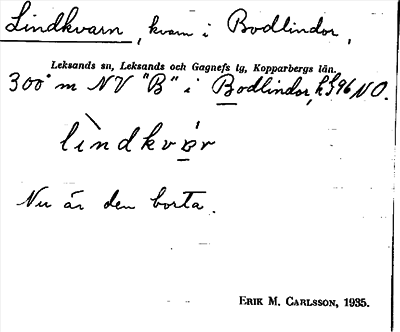 Lindkvarn, kvarn i Bodlindor,
Leksands sn, Leksands och Gagnefs tg, Kopparbergs län.
300 m NV "B" i Bodlindor, NO.
lìndkvá̱r
Nu är den borta.
ERIK M. CARLSSON, 1935.